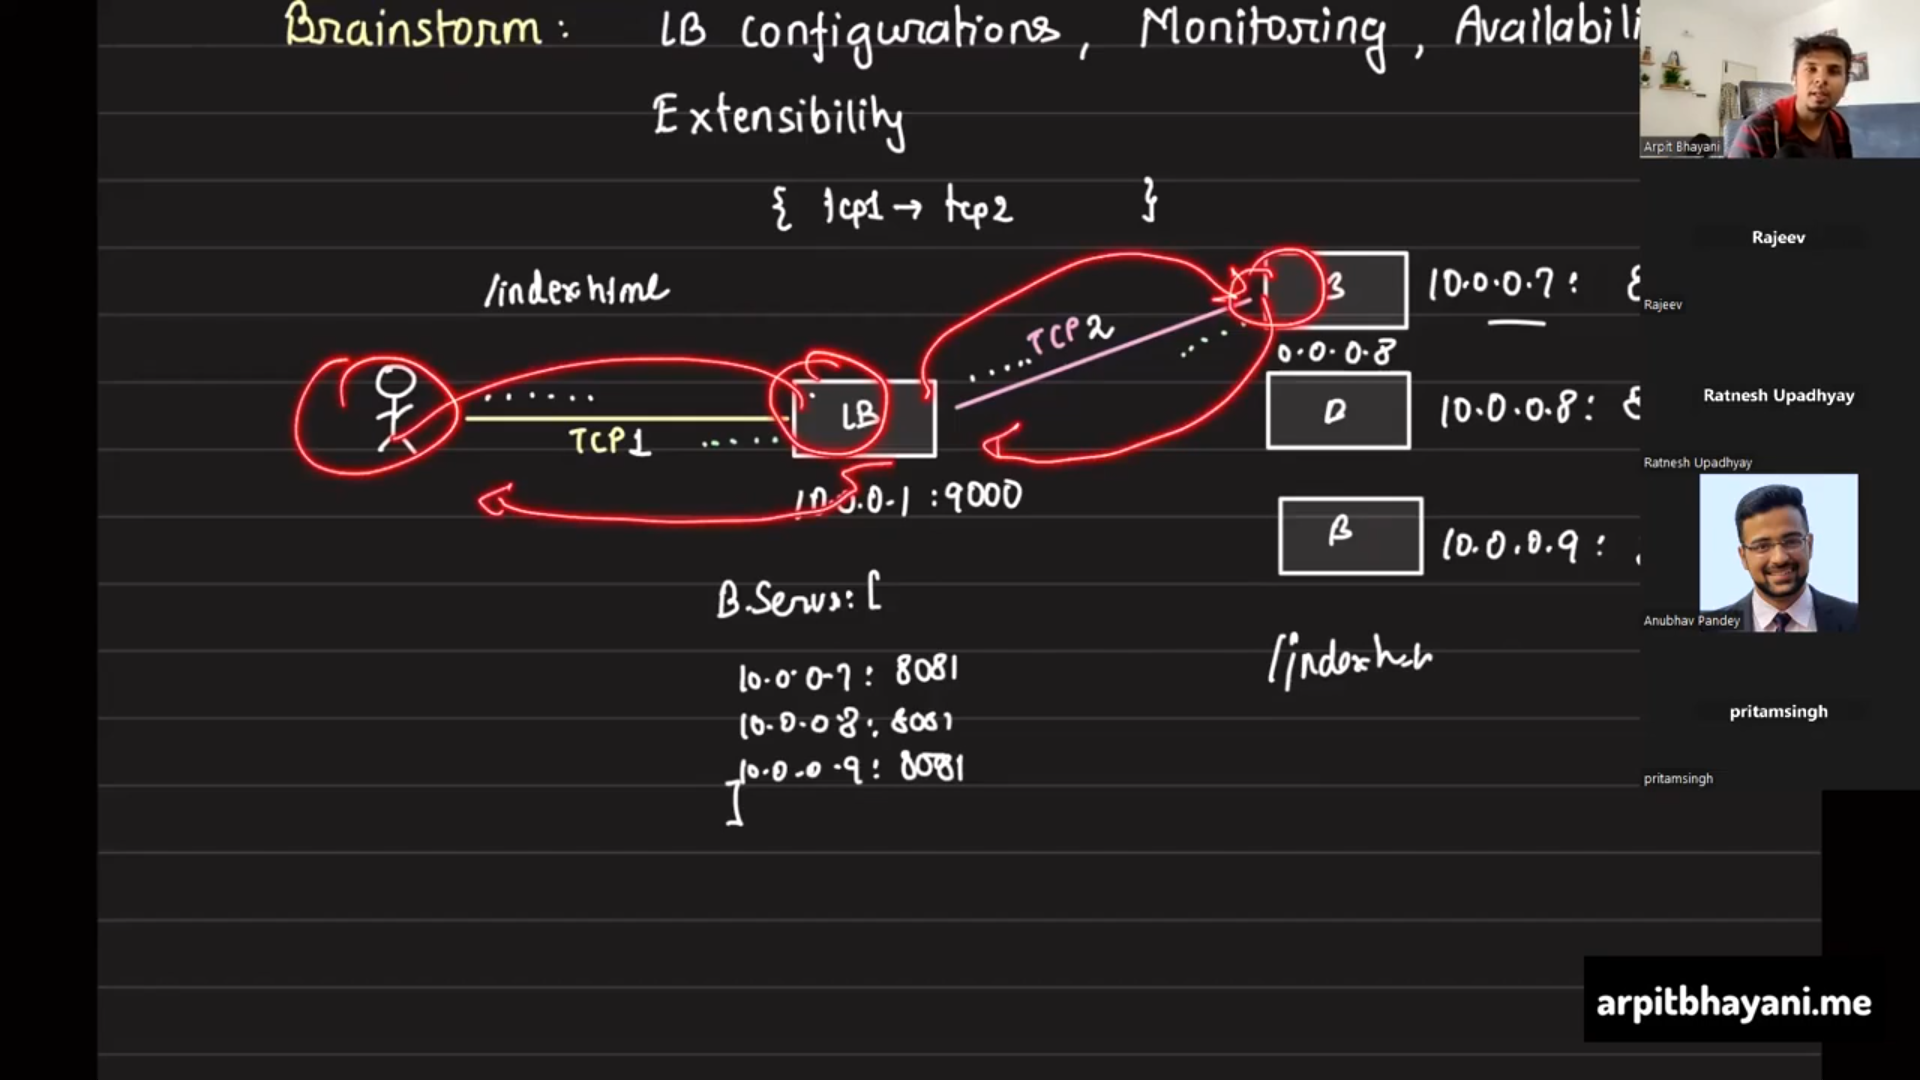 Brainstorm: LB Configurations, Monitoring, Availabili
Extensibility
{ tcp1 → tcp2 }
/index.html
TCP1
LB
10.0.0.1 :9000
TCP2
B
10.0.0.7:
0.0.0.8
B
10.0.0.8: 8
B
10.0.0.9:
B.Servers: [
10.0.0.7: 8081
10.0.0.8: 8081
10.0.0.9: 8081
]
Arpit Bhayani
Rajeev
Rajeev
Ratnesh Upadhyay
Ratnesh Upadhyay
Anubhav Pandey
pritamsingh
pritamsingh
arpitbhayani.me